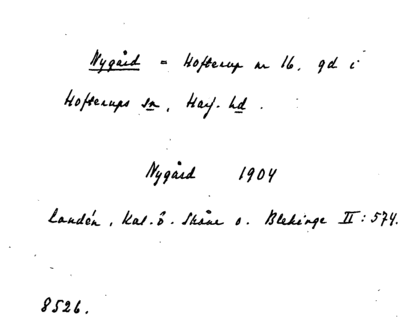 Nygård = Hofterup nr 16. gd i
Hofterups sn, Harj. hd.
Nygård 1904
Landén, Kal. ö. Skåne o. Blekinge II: 574.
8526.